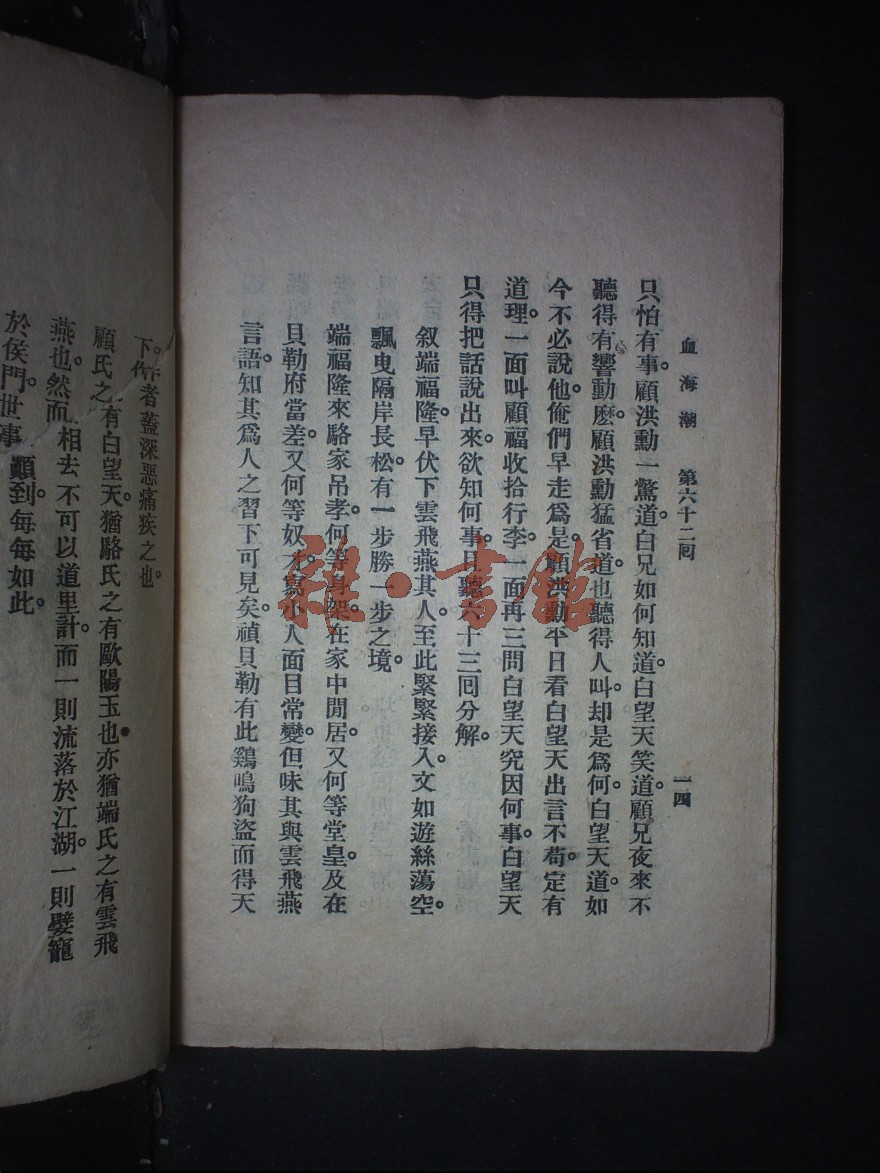 血海潮　第六十二囘　一四
只怕有事。顧洪勳一驚道。白兄如何知道。白望天笑道。顧兄夜來不
聽得有響動麽。顧洪勳猛省道。也聽得人叫。却是爲何。白望天道。如
今不必說他。俺們早走爲是。顧洪勳平日看白望天出言不苟。定有
道理。一面叫顧福收拾行李。一面再三問白望天究因何事。白望天
只得把話說出來。欲知何事。且聽六十三囘分解。
叙端福隆。早伏下雲飛燕其人。至此緊緊接入。文如遊絲蕩空。
飄曳隔岸長松。有一步勝一步之境。
端福隆來駱家吊孝。何等身架。在家中閒居。又何等堂皇。及在
貝勒府當差。又何等奴才。寫小人面目常變。但味其與雲飛燕
言語。知其爲人之習下可見矣。禎貝勒有此鷄鳴狗盜而得天
下。作者蓋深惡痛疾之也。
顧氏之有白望天。猶駱氏之有歐陽玉也。亦猶端氏之有雲飛
燕也。然而相去不可以道里計。而一則流落於江湖。一則嬖寵
於侯門。世事顛到。每每如此。
雜·書館